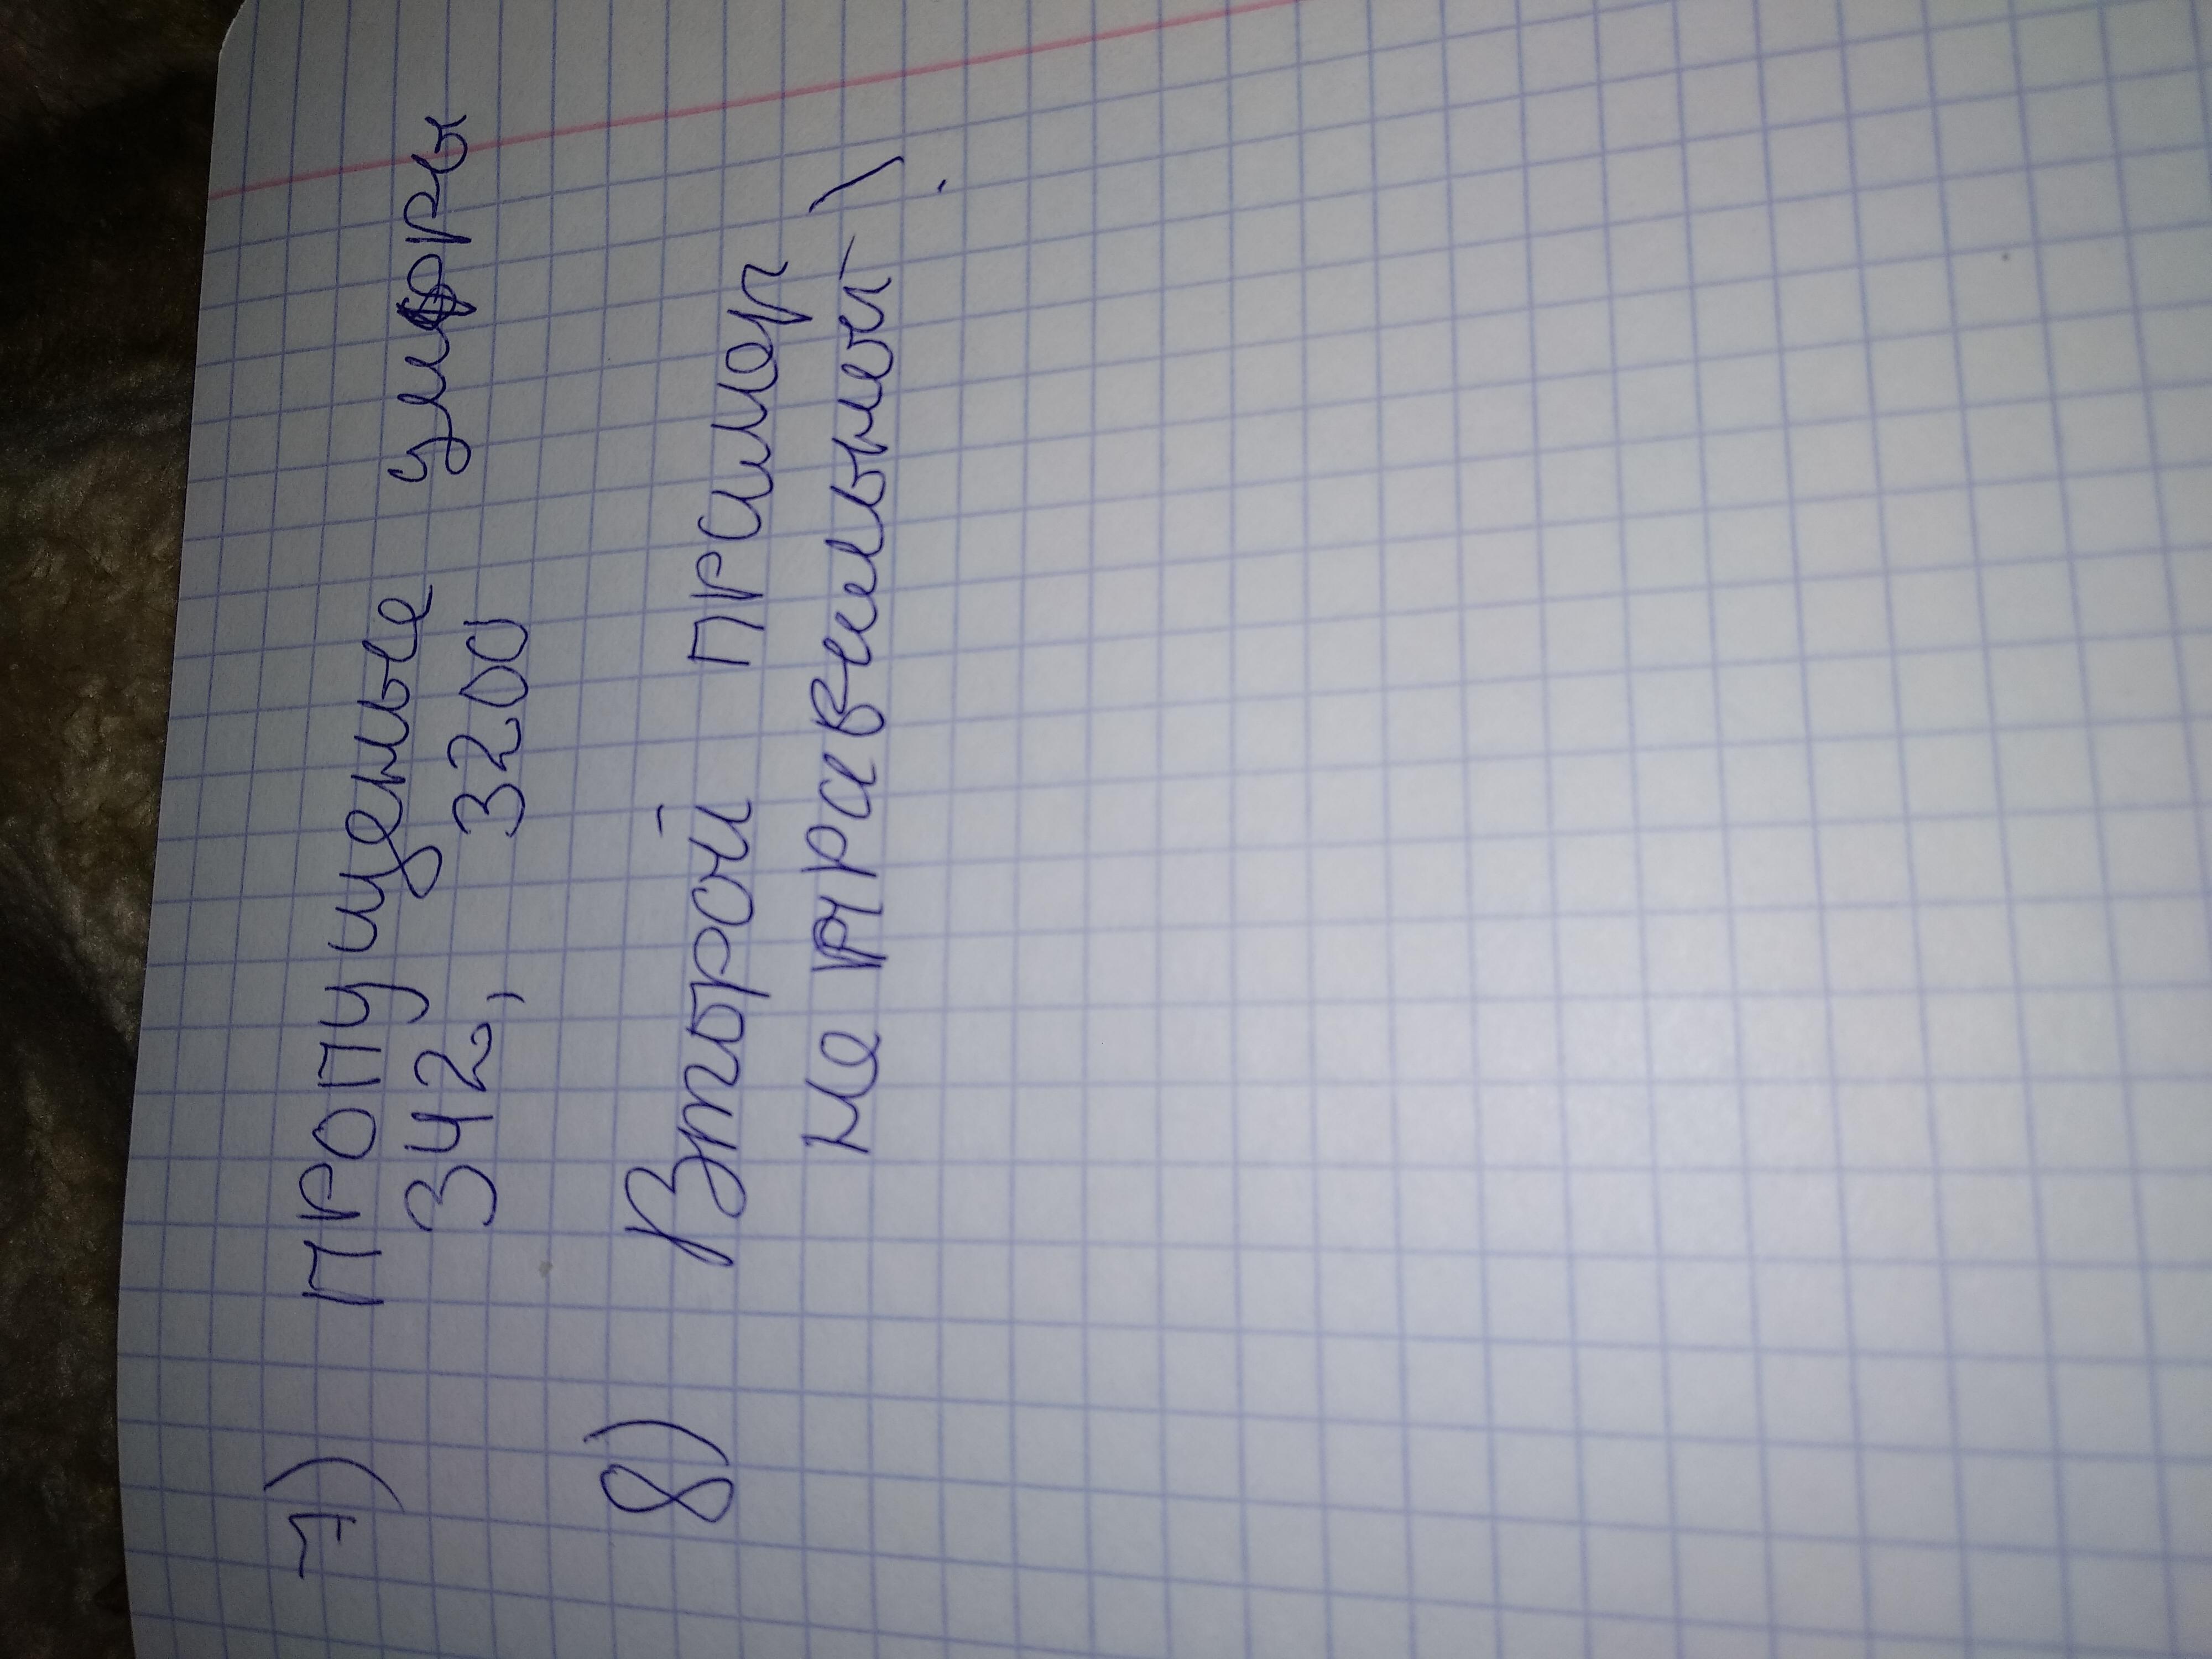 7) Пропущеные цифры
342, 3200
8) Второй пример
не правильный!